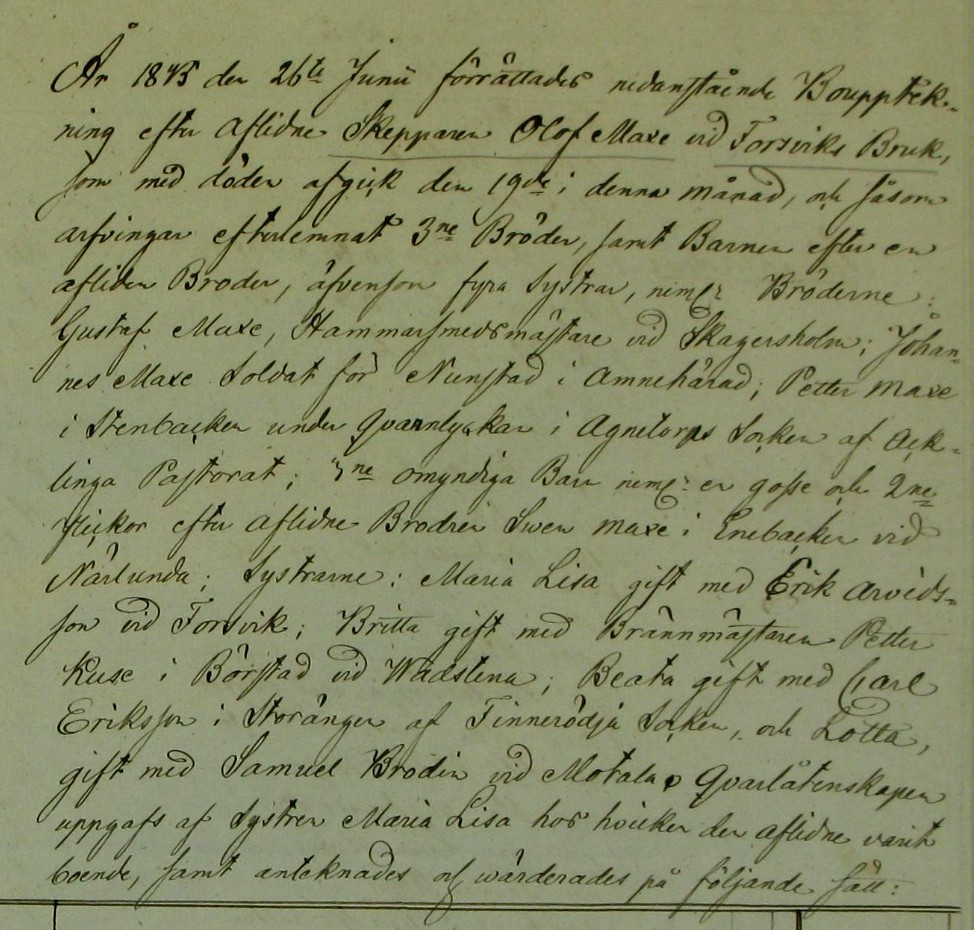 År 1845 den 26te Junii förrättades nedanstående Bouppték-
ning efter aflidne Skepparen Olof Maxe vid Forsviks Bruk,
som med döden afgick den 19de i denna månad, och såsom
arfvingar efterlemnat 3ne Bröder, samt Barnen efter en
afliden Broder, äfvensom fyra Systrar, neml: Bröderne:
Gustaf Maxe, Hammarsmedsmästare vid Skagersholm; Johan-
nes Maxe Soldat för Nunstad i Amnehärad; Petter Maxe
i Stenbacken under Qvarnlyckan i Agnetorps Socken af Ack-
linga Pastorat; 3ne omyndiga Barn neml: en gosse och 2ne
flickor efter aflidne Brodren Swen Maxe i Enebacken vid
Närlunda; Systrarne: Maria Lisa gift med Erik Arvids-
son vid Forsvik; Britta gift med Brännmästaren Petter
Ruse i Börstad vid Wadstena; Beata gift med Carl
Eriksson i Storängen af Tinnerödja Socken, och Lotta,
gift med Samuel Brodin vid Motala. Qvarlåtenskapen
uppgafs af Systren Maria Lisa hos hvilken den aflidne varit
boende, samt antecknades och wärderades på följande sätt: